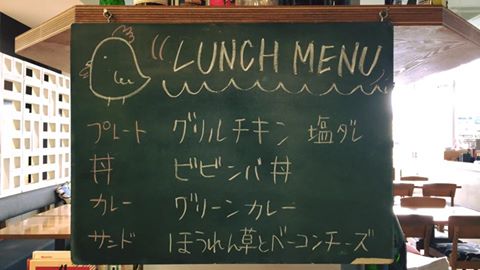 LUNCH MENU
プレート グリルチキン 塩ダレ
丼 ビビンバ丼
カレー グリーンカレー
サンド ほうれん草とベーコンチーズ